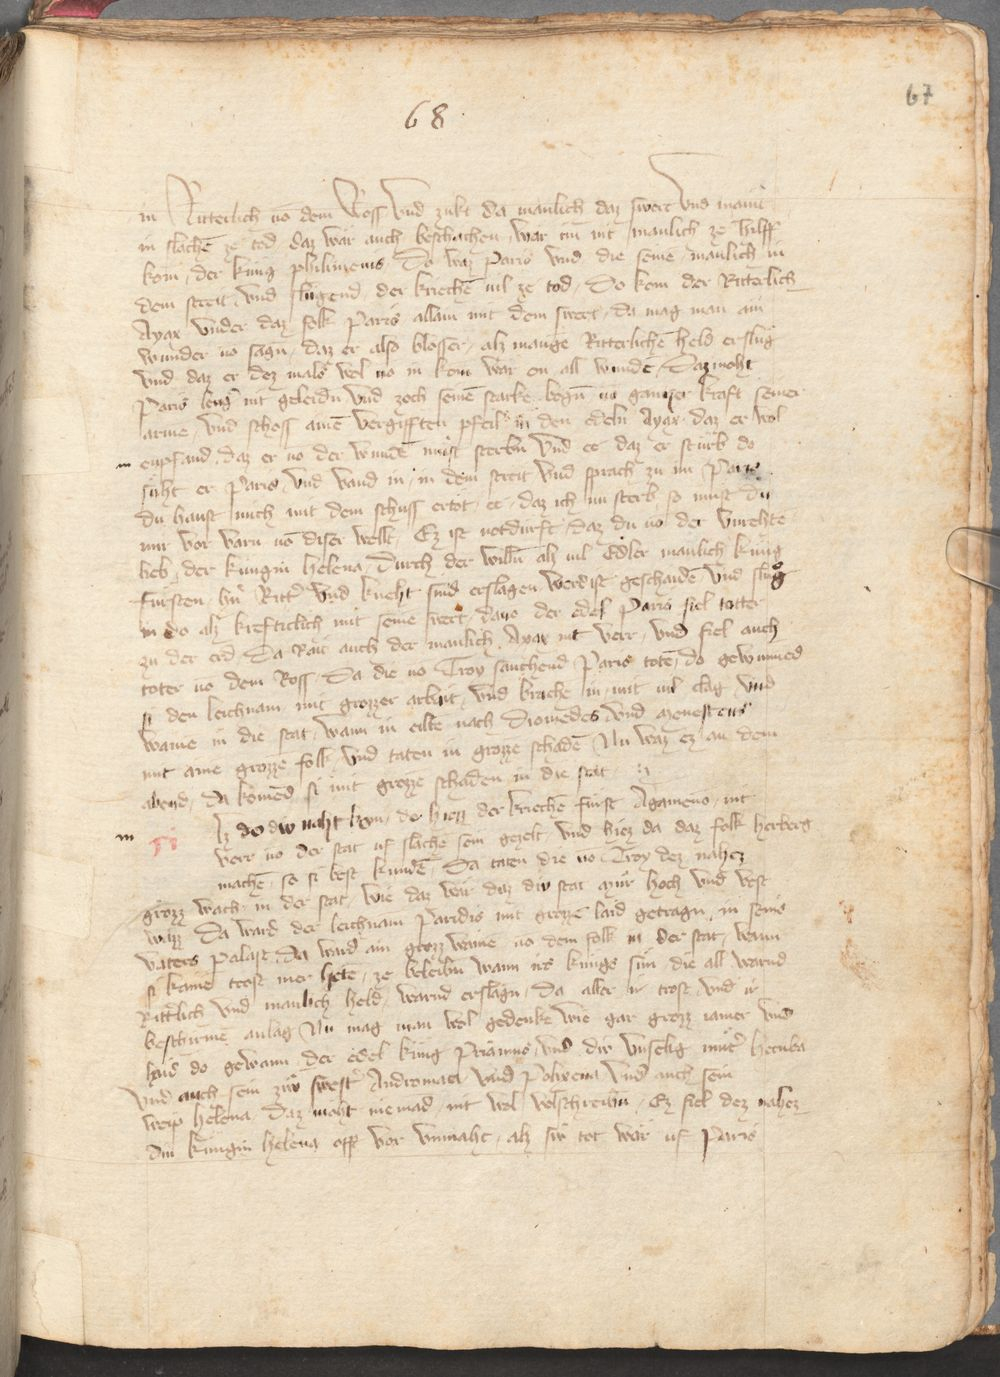 67
68
in Ritterlich vō dem Ross Vnd zukt da manlich daz swert Vnd maint
in slachē ze tod daz wär auch beschachen wär im nit manlich ze hilff
kom der küng philimenis Do waz Paris vnd die seine manlich in
dem streit vnd slugend der kriechē vil ze tod Do kom der Ritterlich
Ayax vnder daz folk Paris allain mit dem swert da mag man ain
wunder vō sagn daz er also blosser alz mange Ritterlichē held erslug
vnd daz er dez mals wol vō in kom wär on all wundē Daz moht
Paris leng nit geleidn vnd zoch seinē starkē bogn vō gantzer kraft seiner
arme vnd schoss ainē vergifften pfeil in den edeln Ayax daz er wol
enpfand daz er vō der wundē müst sterbn vnd ee daz er sturb do
sucht er Paris vnd vand in in dem streit vnd sprach zu im Paris
du haust mich mit dem schuss ertöt ee daz ich nu sterb so müst du
mir vor varn vō diser welt Ez ist notdurft daz du vō der vnrehte
lieb der küngin Helena durch der willn alz vil Edler manlich küng
fürsten hr̄n Ritt̄ vnd kneht sind erslagen werdist geschaidē vnd slug
in do alz krefticlich mit seinē swert davō der edel Paris fiel totter
zu der erd Da Rait auch der manlich Ayax nit verr vnd fiel auch
toter vō dem Ross Da die vō Troy sauhend Paris totē do gewunned
si den leichnam mit grozzer arbait vnd brache in mit vil clag vnd
waine in die stat wann in eiltē nach Diomedes vnd Menesteus
mit aine grozze folk vnd taten in grozze schadē Nu waz ez an dem
abend da komēd si mit grozze schaden in die stat
lz do div naht kom do hiezz der kriechē fürst Agameno nit
verr vō der stat vf slachē sein gezelt vnd hiez da daz folk herberg
machē so si best kundē Da taten die vō Troy dez nahez
grozz wach in der stat wie daz wär daz div stat mür hoch vnd vest
wazz Da ward der leichnam Paridis mit grozzē laid getragn in seins
vaters Palast Da ward ain grozz waine vō dem folk in der stat wann
si kaine trost mer hetē ze beleibn wann irs küngs sün die all warnd
Rittlich vnd manlich held warnd erslagn Da aller ir trost vnd ir
beschirmē anlag Nu mag man wol gedenke wie gar grozz iamer vnd
laid do gewann der edel küng Priamus vnd div vnselig mut̄ hecuba
vnd auch sein zwo swest̄ Andromaca vnd Polixena vnd auch sein
weip helena Daz moht nie mād nit wol volschreibn Ez fiel dez nahez
div küngin helena offt vor vnmaht alz siv tot wär vf Paris